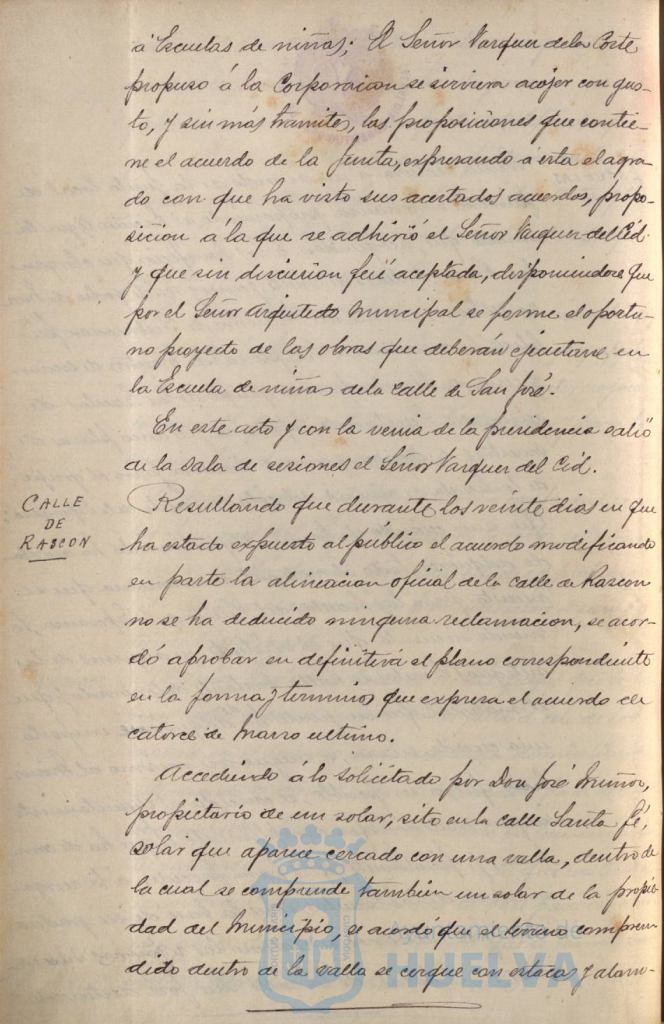 á Escuelas de niñas; El Señor Vazquez de la Corte
propuso á la Corporacion se sirviera acojer con gus-
to, y sin más tramites, las proposiciones que contie-
ne el acuerdo de la Junta, expresando á esta el agra-
do con que ha visto sus acertados acuerdos, propo-
sicion á la que se adhirió el Señor Vazquez del Cid.
y que sin discusion fué aceptada, disponiendose que
por el Señor Arquitecto Municipal se forme el oportu-
no proyecto de las obras que deberán ejecutarse en
la Escuela de niñas de la calle de San José.
En este acto y con la venia de la presidencia salió
de la sala de sesiones el Señor Vazquez del Cid.
CALLE
DE
RASCON
Resultando que durante los veinte dias en que
ha estado expuesto al público el acuerdo modificando
en parte la alineacion oficial de la calle de Rascon
no se ha deducido ninguna reclamacion, se acor-
dó aprobar en definitiva el plano correspondiente
en la forma y terminos que expresa el acuerdo de
catorce de Marzo ultimo.
Accediendo á lo solicitado por Don José Muñoz,
propietario de un solar, sito en la calle Santa Fé,
solar que aparece cercado con una valla, dentro de
la cual se comprende tambien un solar de la propie-
dad del Municipio, se acordó que el terreno compren-
dido dentro de la valla se cerque con estacas y alam-
Ayuntamiento de
HUELVA